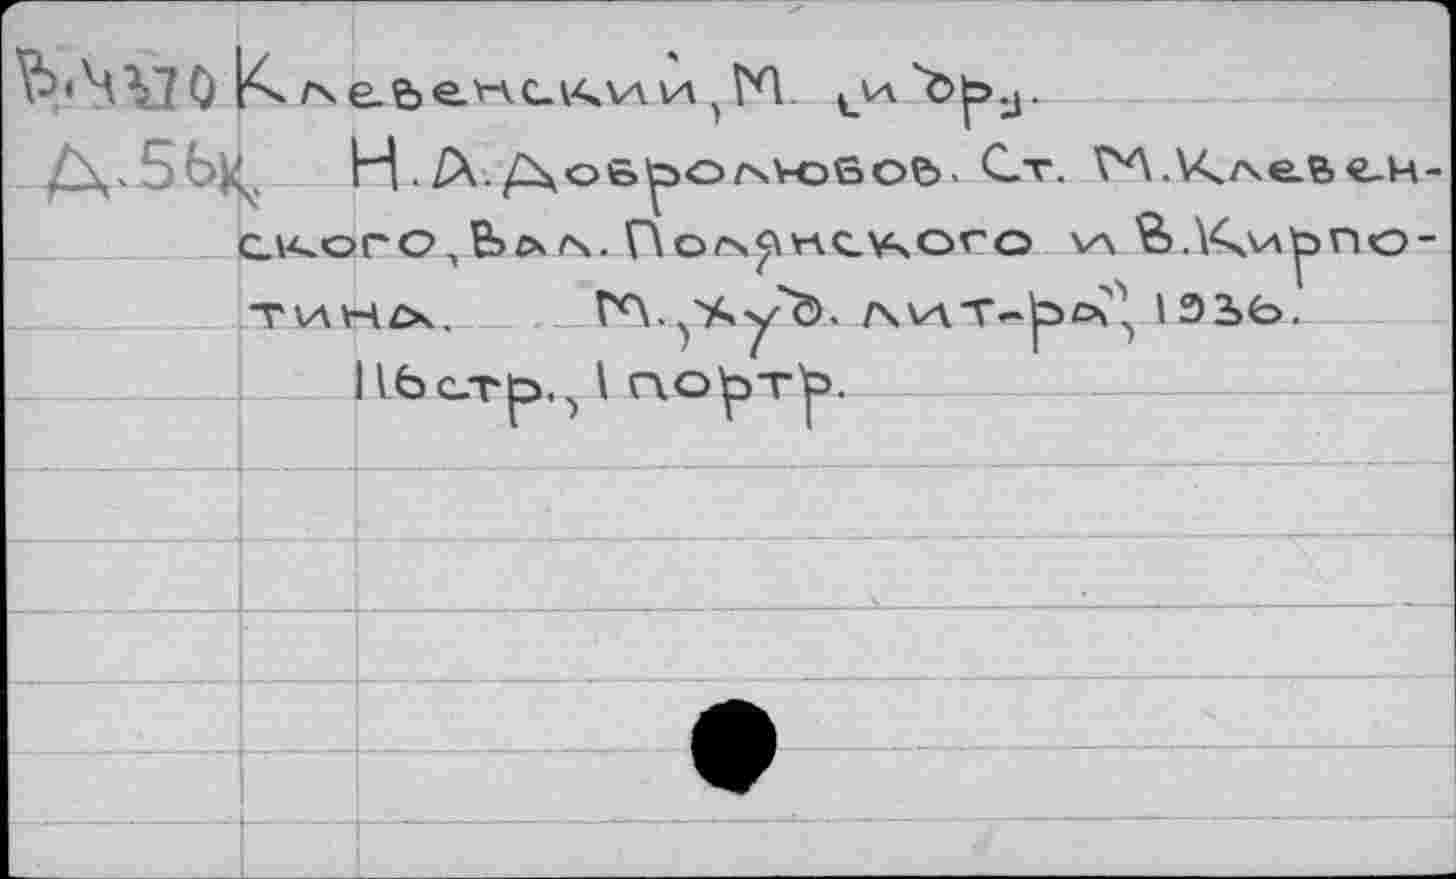 В.Ч270 Клевенский, М. [и др].
Д.56к Н.А. Добролюбов. Ст. М.Клевен-
ского, Вал. Полянского и В.Кирпо-
тина. М., "Худ. лит-ра", 1936.
116 стр., 1 портр.